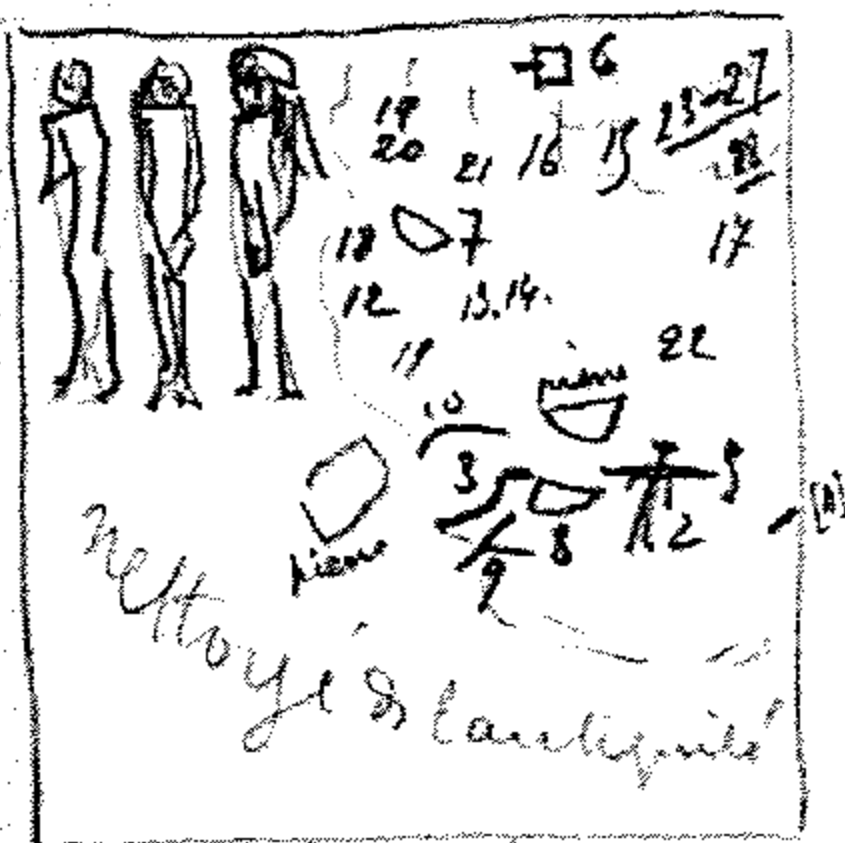 6
19
20
21
16
15
23-27
18
7
17
12
13. 14.
22
pierre
10
3
5
8
2
9
pierre
nettoyé ds l'antiquité